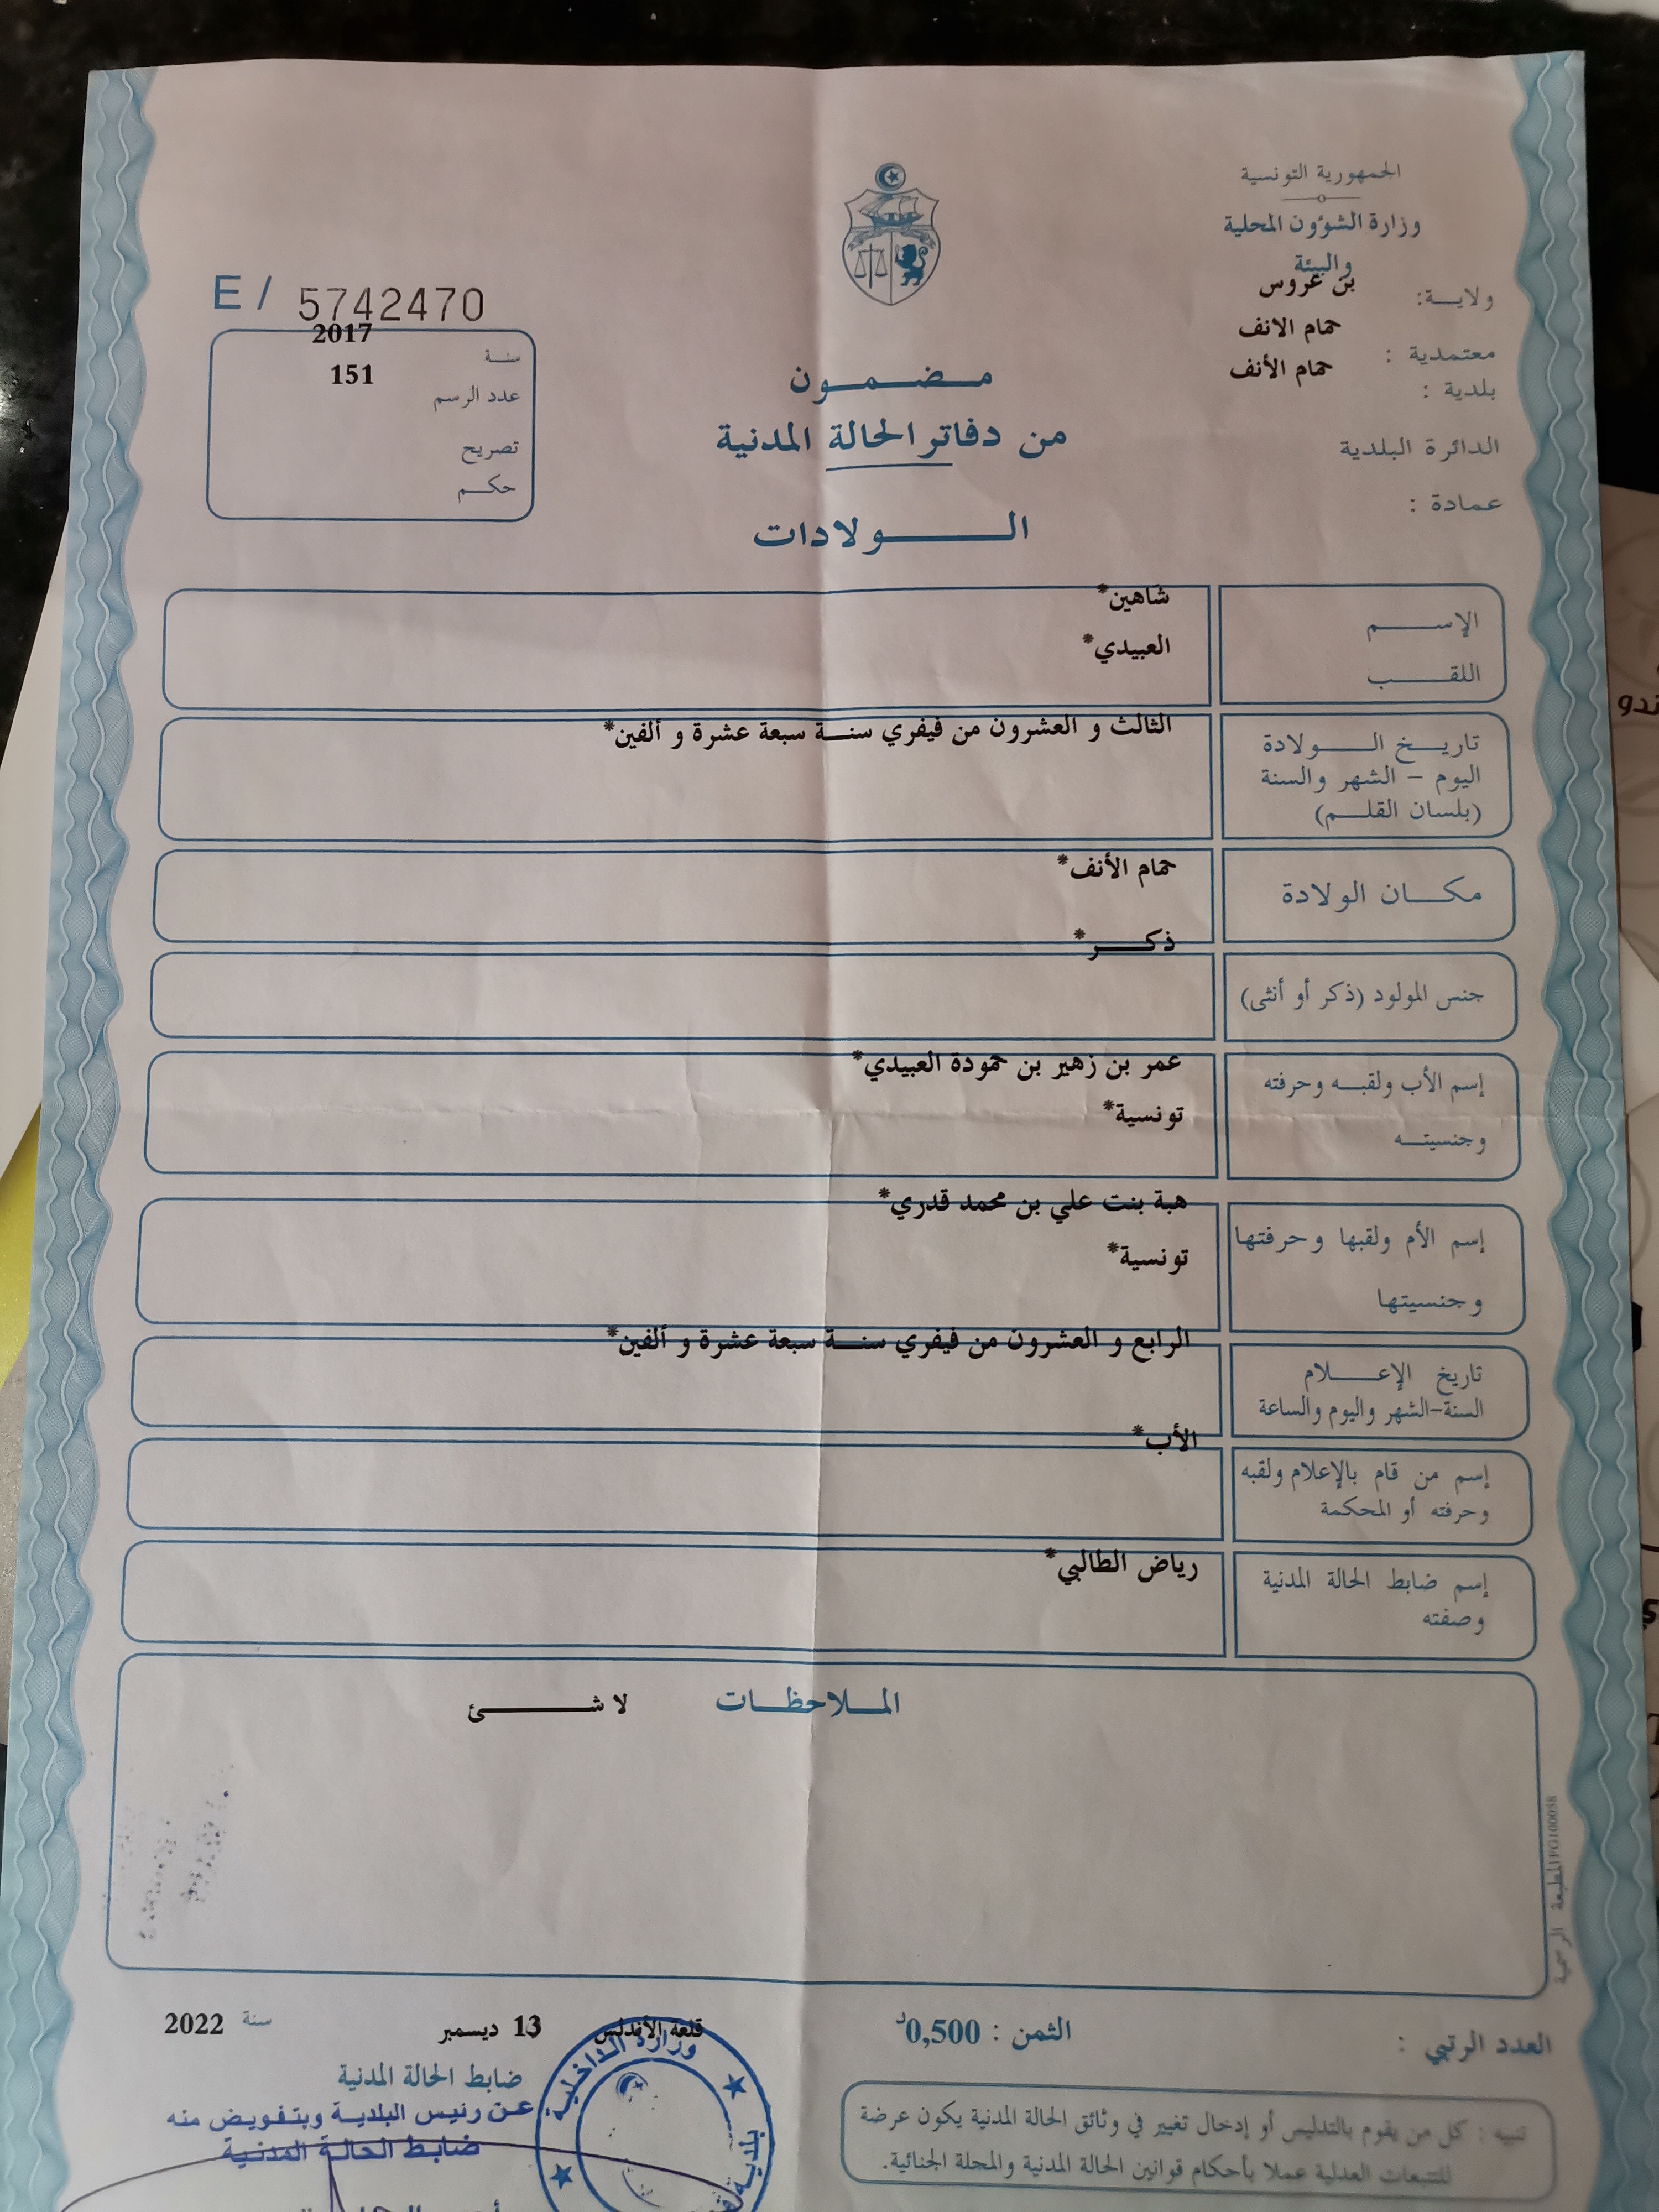 الجمهورية التونسية
وزارة الشؤون المحلية
والبيئة
ولاية: بن عروس
معتمدية : حمام الانف
بلدية : حمام الأنف
الدائرة البلدية
عمادة :
E / 5742470
سنة 2017
عدد الرسم 151
تصريح
حكم
مضمون
من دفاتر الحالة المدنية
الولادات
الإسم شاهين*
اللقب العبيدي*
تاريخ الولادة الثالث و العشرون من فيفري سنة سبعة عشرة و ألفين*
اليوم - الشهر والسنة
(بلسان القلم)
مكان الولادة حمام الأنف*
جنس المولود (ذكر أو أنثى) ذكر*
إسم الأب ولقبه وحرفته عمر بن زهير بن حمودة العبيدي*
وجنسيته تونسية*
إسم الأم ولقبها وحرفتها هبة بنت علي بن محمد قدري*
وجنسيتها تونسية*
تاريخ الإعلام الرابع و العشرون من فيفري سنة سبعة عشرة و ألفين*
السنة-الشهر واليوم والساعة
إسم من قام بالإعلام ولقبه الأب*
وحرفته أو المحكمة
إسم ضابط الحالة المدنية رياض الطالبي*
وصفته
الملاحظات لا شئ
المطبعة الرسمية
العدد الرتبي :
الثمن : 0,500د
قلعة الأندلس 13 ديسمبر سنة 2022
ضابط الحالة المدنية
عن رئيس البلدية وبتفويض منه
ضابط الحالة المدنية
وزارة الداخلية
بلدية
تنبيه : كل من يقوم بالتدليس أو إدخال تغيير في وثائق الحالة المدنية يكون عرضة
للتتبعات العدلية عملا بأحكام قوانين الحالة المدنية والمجلة الجنائية.